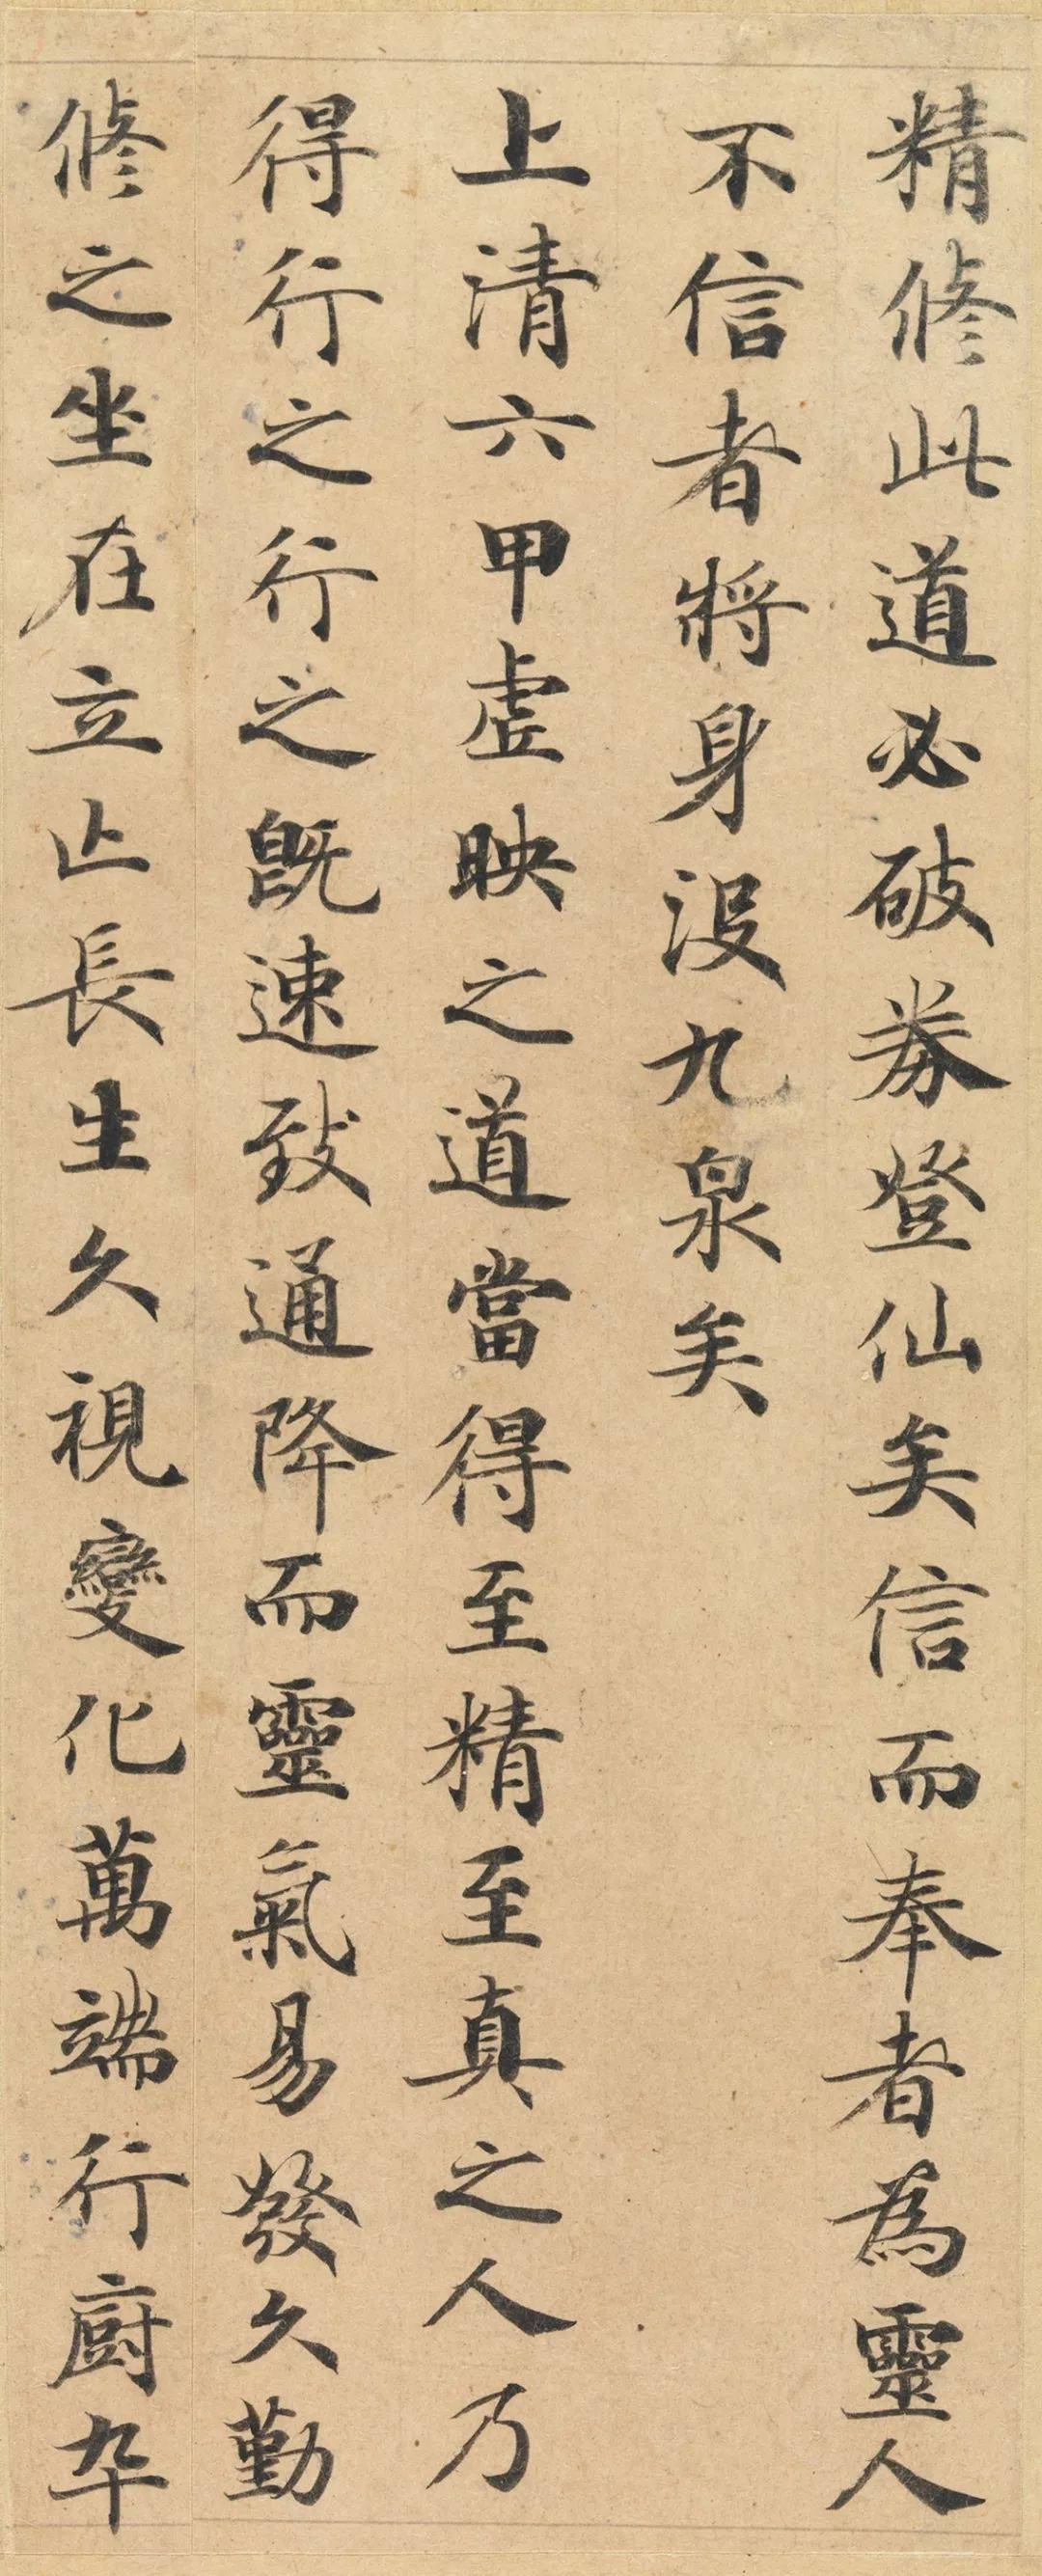 精脩此道必破券登仙矣信而奉者為靈人
不信者將身沒九泉矣
上清六甲虛映之道當得至精至真之人乃
得行之行之既速致通降而靈氣易發久勤
脩之坐在立亡長生久視變化萬端行廚卒